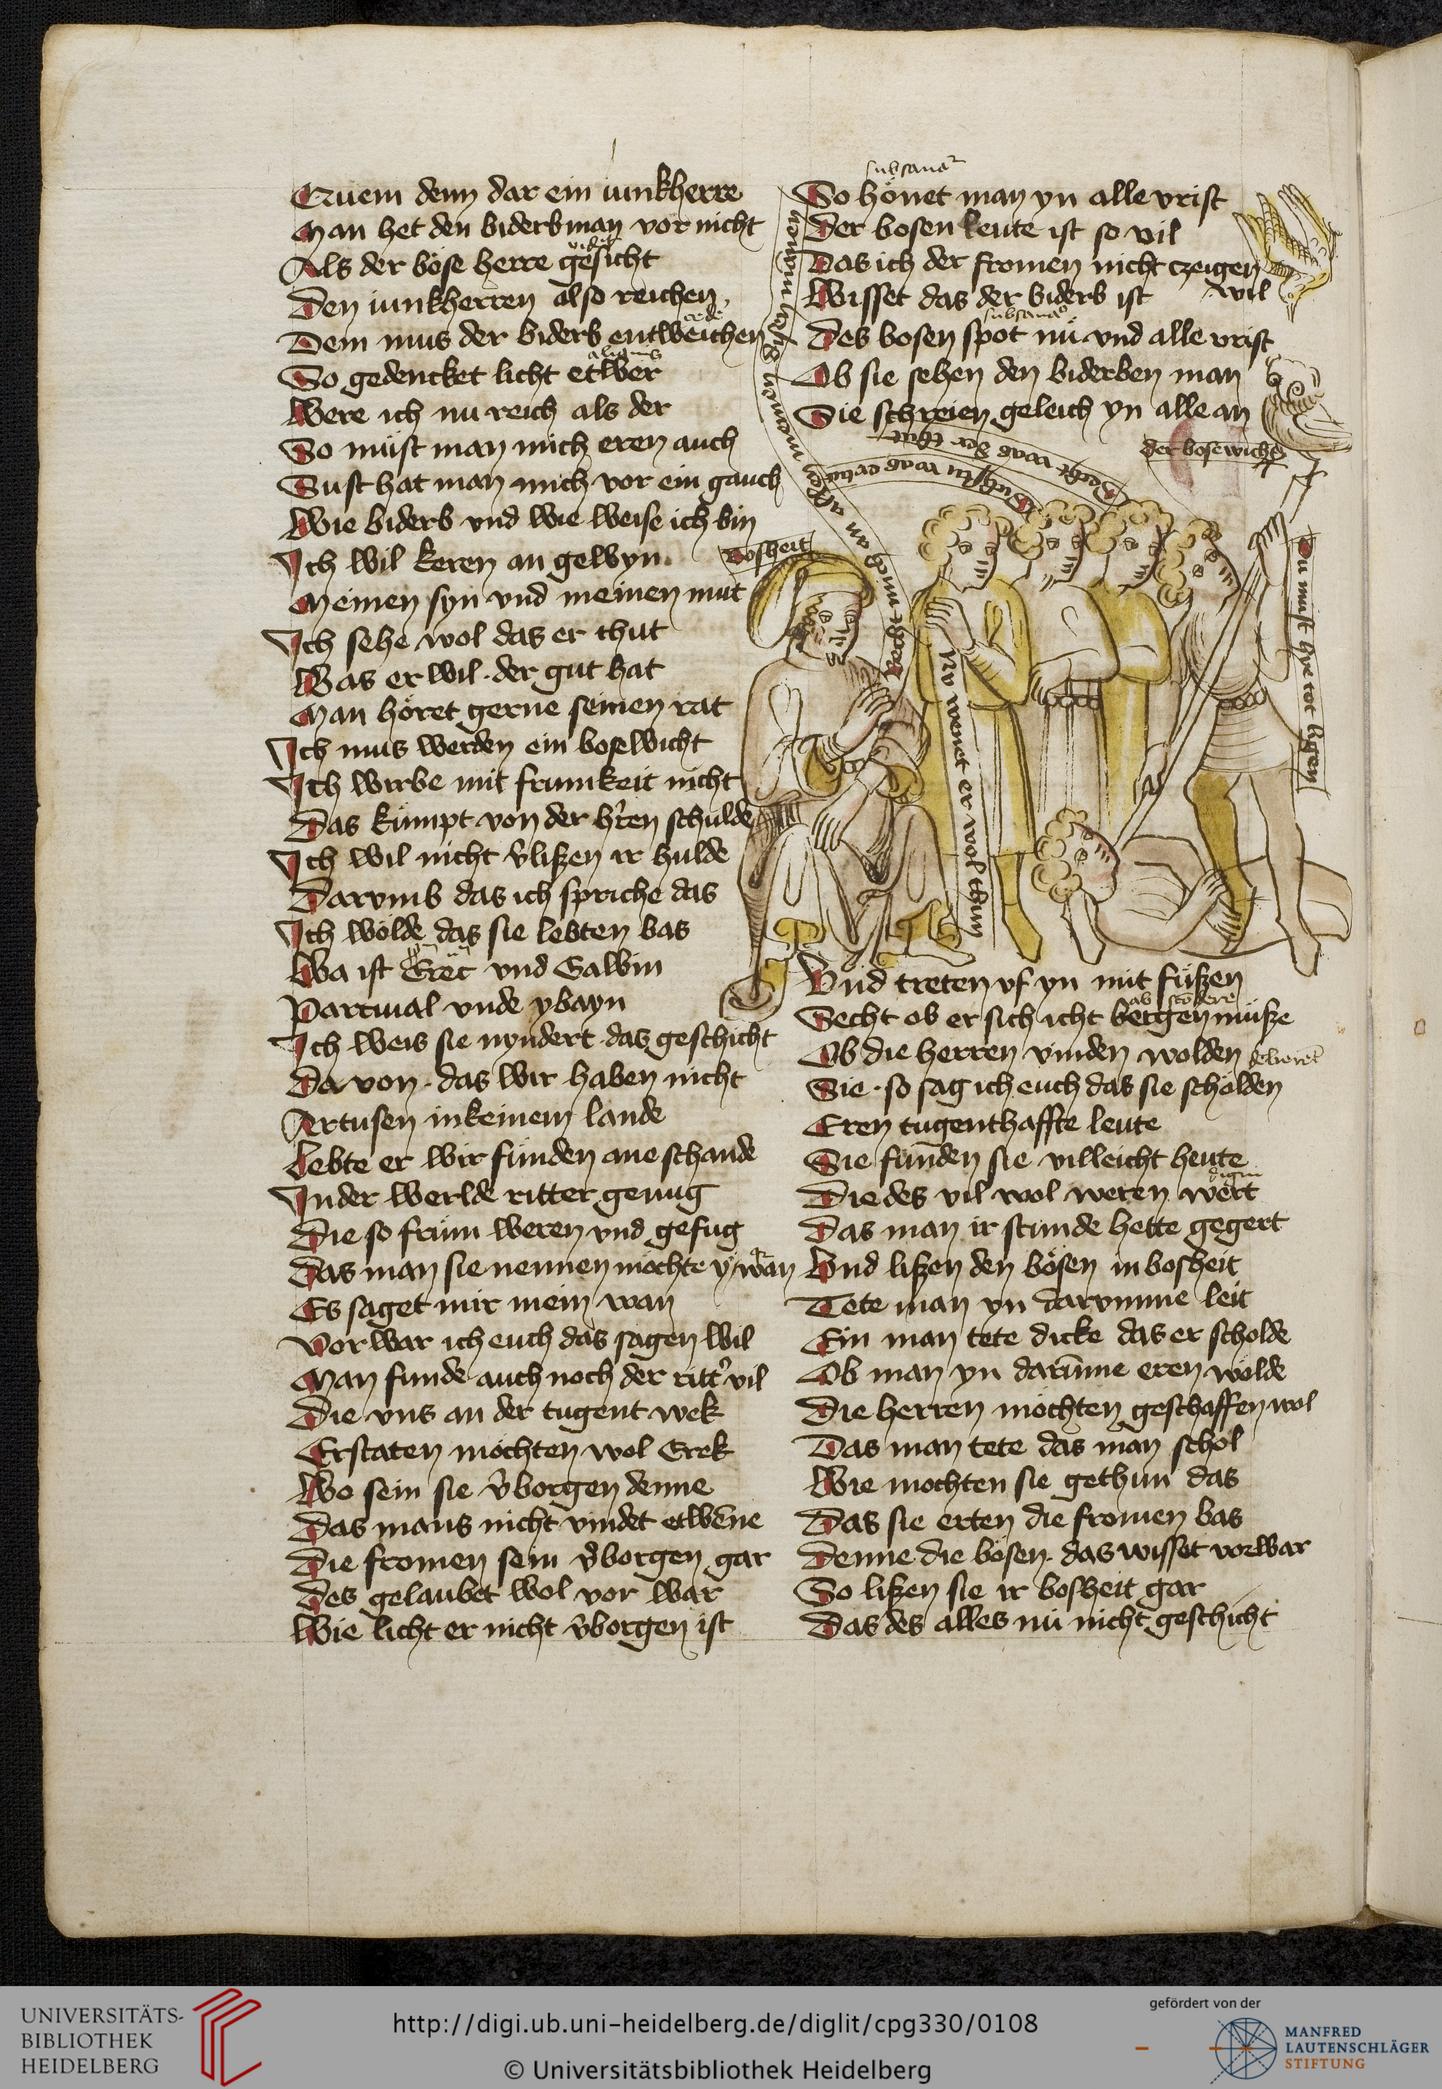 Quem denn dar ein iunkherre
Man het den biderbman vor nicht
Als der böse herre gesicht
Den iunkherren also reichen
Dem mus der biderb entweichen
So gedencket licht etwer
Were ich nu reich als der
So müst man mich eren auch
Sust hat man mich vor ein gauch
Wie biderb vnd wie weise ich bin
Ich wil keren an gewyn
Meinen syn vnd meinen mut
Ich sehe wol das er thut
Was er wil · der gut hat
Man höret gerne seinen rat
Ich mus werden ein bosewicht
Ich wirbe mit frumkeit nicht
Das kümpt von der hren schulde
Ich wil nicht vliszen ir hulde
Darvmb das ich spriche das
Ich wölde das sie lebten bas
Wa ist Erec vnd Gawin
Parciual vnde ybayn
Ich weis sie nyndert das geschicht
Da von · das wir haben nicht
Artusen in keinem lande
Lebte er wir fünden ane schande
In der werlde ritter genug
Die so frum weren vnd gefug
Das man sie nennen möchte wan
Es saget mir mein wan
Vor war ich euch das sagen wil
Man funde auch noch der ritt' vil
Die vns an der tugent wek
Erstaten möchten wol Erek
Wo sein sie v'borgen denne
Das mans nicht vindet etwēne
Die fromen sein v'borgen gar
Des gelaubet wol vor war
Wie licht er nicht v'borgen ist
So hönet man yn alle vrist
Der bosen leute ist so vil
Das ich der fromen nicht czeigen
wil
Wisset das der biderb ist
Des bosen spot nü vnd alle vrist
Ob sie sehen den biderben man
Sie schreien geleich yn alle an
der bosewicht
bosheit
Nv wenet er wol thun
Du must hye tot ligen
Vnd treten vf yn mit füszen
Secht ob er sich icht bergen müsze
Ob die herren vinden wolden
Sie · so sag ich euch das sie schölden
Eren tugenthaffte leute
Sie fünden sie villeicht heute
Die des vil wol weren wert
Das man ir stunde hette gegert
Vnd liszen den bösen in bosheit
Tete man yn darvmme leit
Ein man tete dicke das er scholde
Ob man yn darūme eren wölde
Die herren möchten geschaffen wol
Das man tete das man schol
Wie mochten sie gethun das
Das sie erten die fromen bas
Denne die bösen · das wisset vorwar
So liszen sie ir bosheit gar
Das des alles nü nicht geschicht
UNIVERSITÄTS-
BIBLIOTHEK
HEIDELBERG
http://digi.ub.uni-heidelberg.de/diglit/cpg330/0108
© Universitätsbibliothek Heidelberg
gefördert von der
MANFRED
LAUTENSCHLÄGER
STIFTUNG